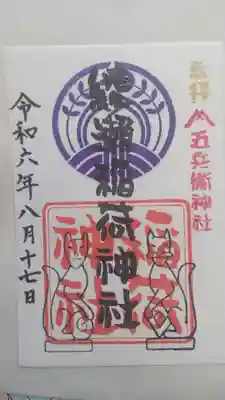 奉拝
五兵衛神社
綾瀬稲荷神社
稲荷神社
令和六年八月十七日